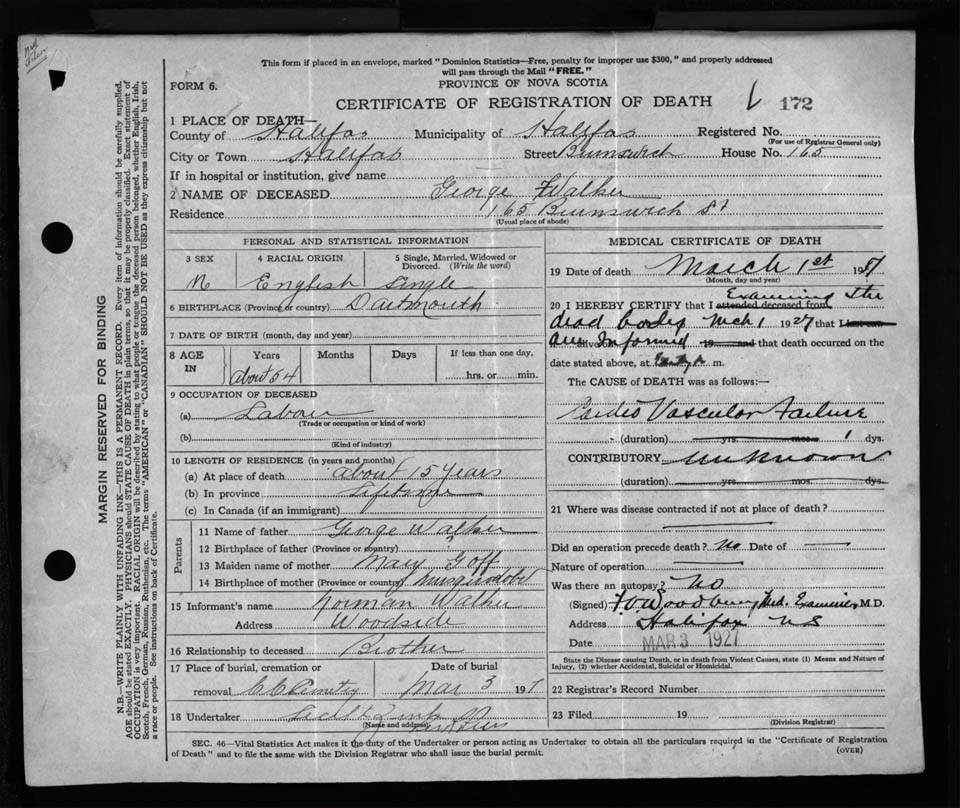 This form if placed in an envelope, marked "Dominion Statistics—Free, penalty for improper use $300," and properly addressed
will pass through the Mail "FREE."
FORM 6.
PROVINCE OF NOVA SCOTIA
CERTIFICATE OF REGISTRATION OF DEATH
172
1 PLACE OF DEATH—
County of Halifax Municipality of Halifax Registered No.
(For use of Registrar General only)
City or Town Halifax Street Brunswick House No. 165
If in hospital or institution, give name
2 NAME OF DECEASED George Walker
Residence 165 Brunswick St
(Usual place of abode)
PERSONAL AND STATISTICAL INFORMATION
3 SEX
M
4 RACIAL ORIGIN
English
5 Single, Married, Widowed or Divorced. (Write the word)
Single
6 BIRTHPLACE (Province or country) Dartmouth
7 DATE OF BIRTH (month, day and year)
8 AGE IN
Years Months Days If less than one day,
about 54 hrs. or min.
9 OCCUPATION OF DECEASED
(a) Labour
(Trade or occupation or kind of work)
(b)
(Kind of industry)
10 LENGTH OF RESIDENCE (in years and months)
(a) At place of death about 15 years
(b) In province Lifetime
(c) In Canada (if an immigrant)
Parents
11 Name of father George Walker
12 Birthplace of father (Province or country)
13 Maiden name of mother Mary Goff
14 Birthplace of mother (Province or country) Musquodobit
15 Informant's name Norman Walker
Address Woodside
16 Relationship to deceased Brother
17 Place of burial, cremation or Date of burial
removal Mar 3 1927
18 Undertaker
(Name and address)
MEDICAL CERTIFICATE OF DEATH
19 Date of death March 1st 1927
(Month, day and year)
20 I HEREBY CERTIFY that I attended deceased from Examined the
dead body Mch 1 1927 that I last saw
alive on am Informed 19 and that death occurred on the
date stated above, at m.
The CAUSE of DEATH was as follows:—
Cardio Vascular Failure
(duration) yrs. mos. 1 dys.
CONTRIBUTORY unknown
(duration) yrs. mos. dys.
21 Where was disease contracted if not at place of death?
Did an operation precede death? No Date of
Nature of operation
Was there an autopsy? No
(Signed) F.V. Woodbury, Med. Examiner M.D.
Address Halifax NS
Date MAR 3 1927
State the Disease causing Death, or in death from Violent Causes, state (1) Means and Nature of
Injury, (2) whether Accidental, Suicidal or Homicidal.
22 Registrar's Record Number
23 Filed 19
(Division Registrar)
SEC. 46—Vital Statistics Act makes it the duty of the Undertaker or person acting as Undertaker to obtain all the particulars required in the "Certificate of Registration
of Death" and to file the same with the Division Registrar who shall issue the burial permit.
(OVER)
MARGIN RESERVED FOR BINDING
N.B.—WRITE PLAINLY WITH UNFADING INK—THIS IS A PERMANENT RECORD. Every item of information should be carefully supplied.
AGE should be stated EXACTLY. PHYSICIANS should STATE CAUSE OF DEATH in plain terms, so that it may be properly classified. Exact statement of
OCCUPATION is very important. RACIAL ORIGIN will be described by stating to what people or tongue the deceased person belonged, whether English, Irish,
Scotch, French, German, Russian, Ruthenian, etc. The terms "AMERICAN" or "CANADIAN" SHOULD NOT BE USED as they express citizenship but not
a race or people. See instructions on back of Certificate.